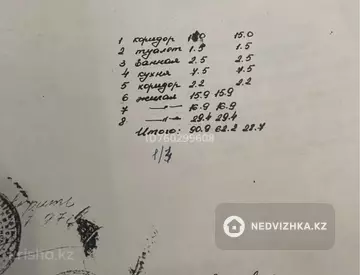 1 коридор 15.0 15.0
2 туалет 1.5 1.5
3 ванная 2.5 2.5
4 кухня 7.5 7.5
5 коридор 2.2 2.2
6 жилая 15.9 15.9
7 —"— 16.9 16.9
8 —"— 29.4 29.4
Итого: 90.9 62.2 28.7
1/4
НЕДВИЖКА.KZ
krisha.kz